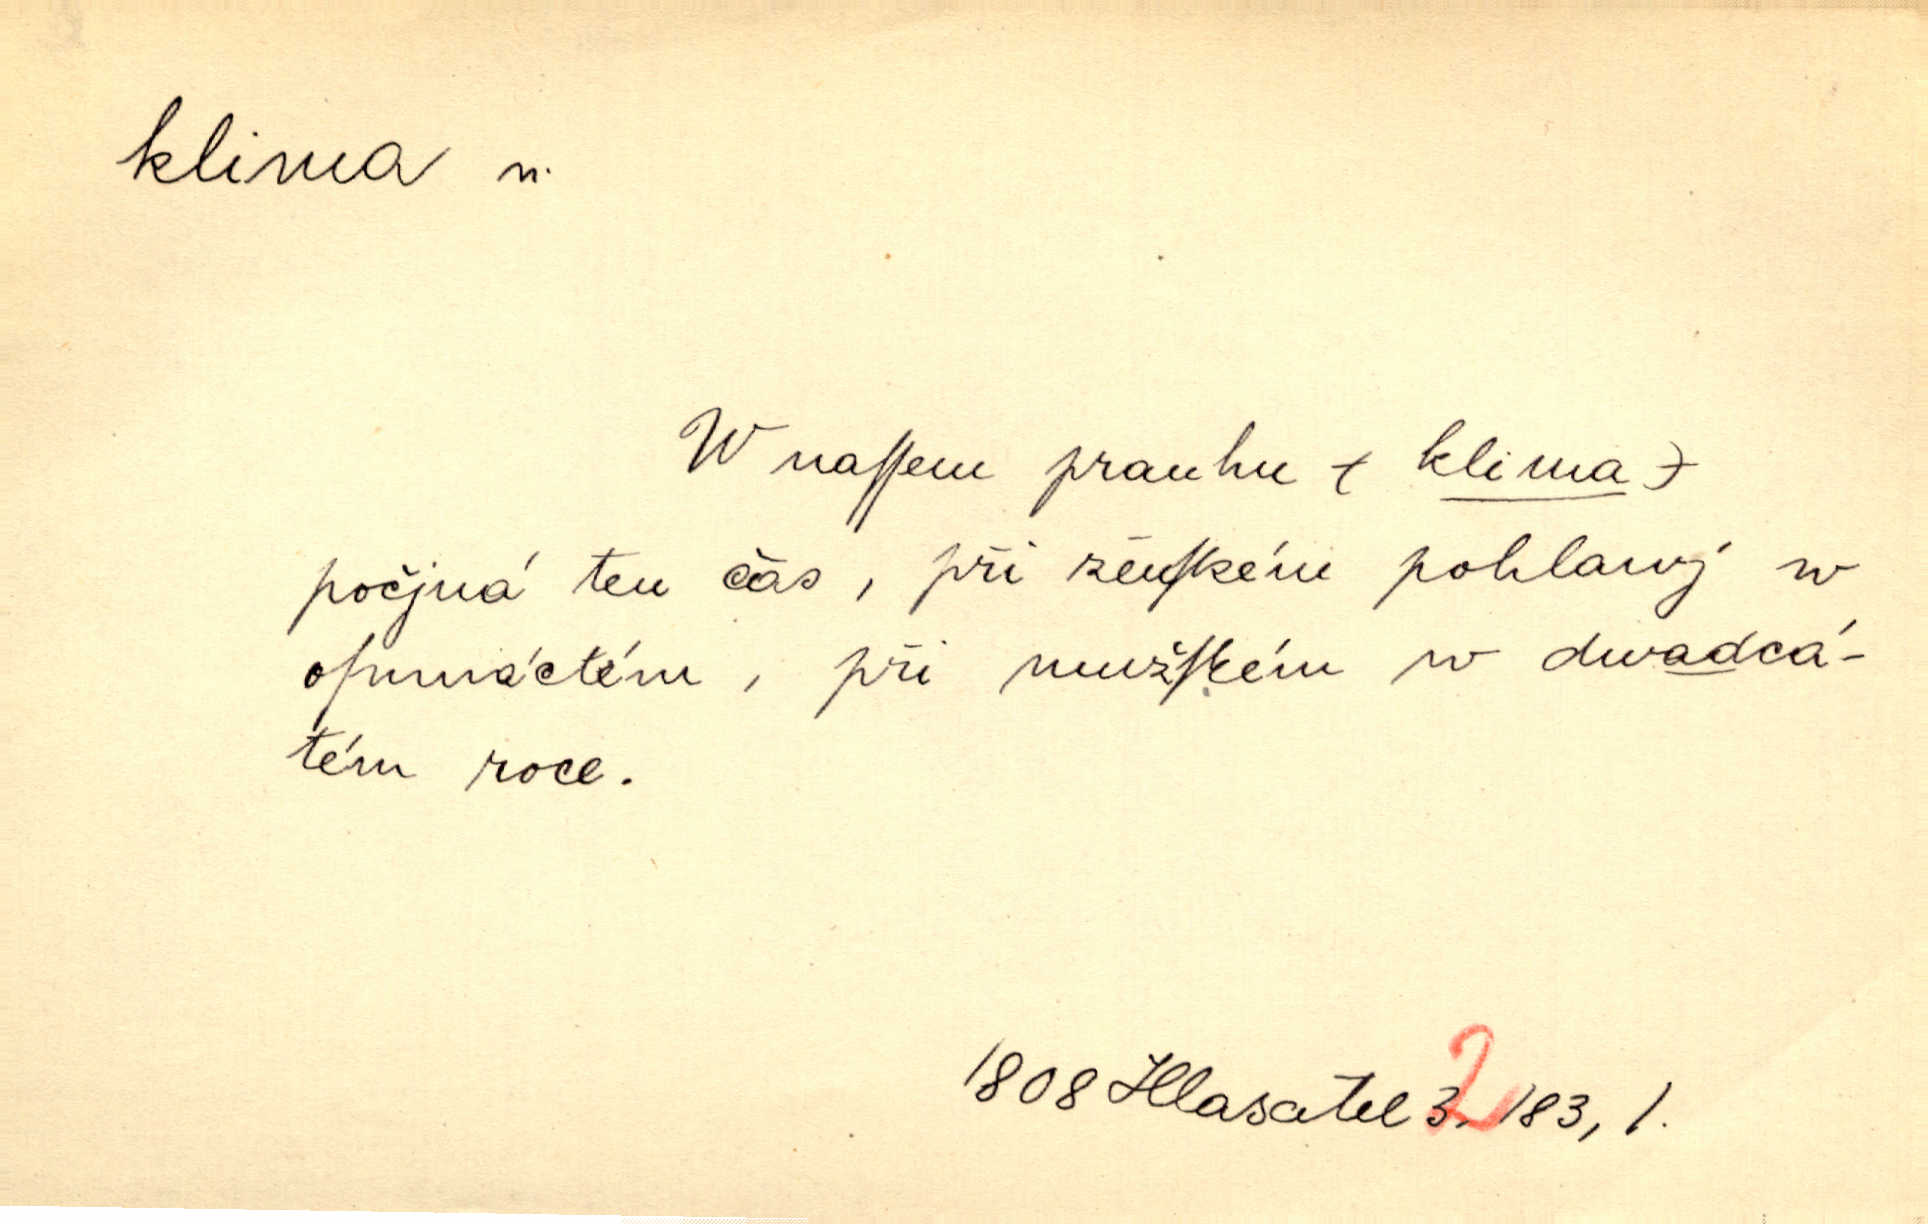 klima n.
W naſſem prauhu (klima)
počjná ten čas, při ženſkém pohlawj w
oſmnáctém, při mužſkém w dwadcá-
tém roce.
1808 Hlasatel 3, 183, 1.
2